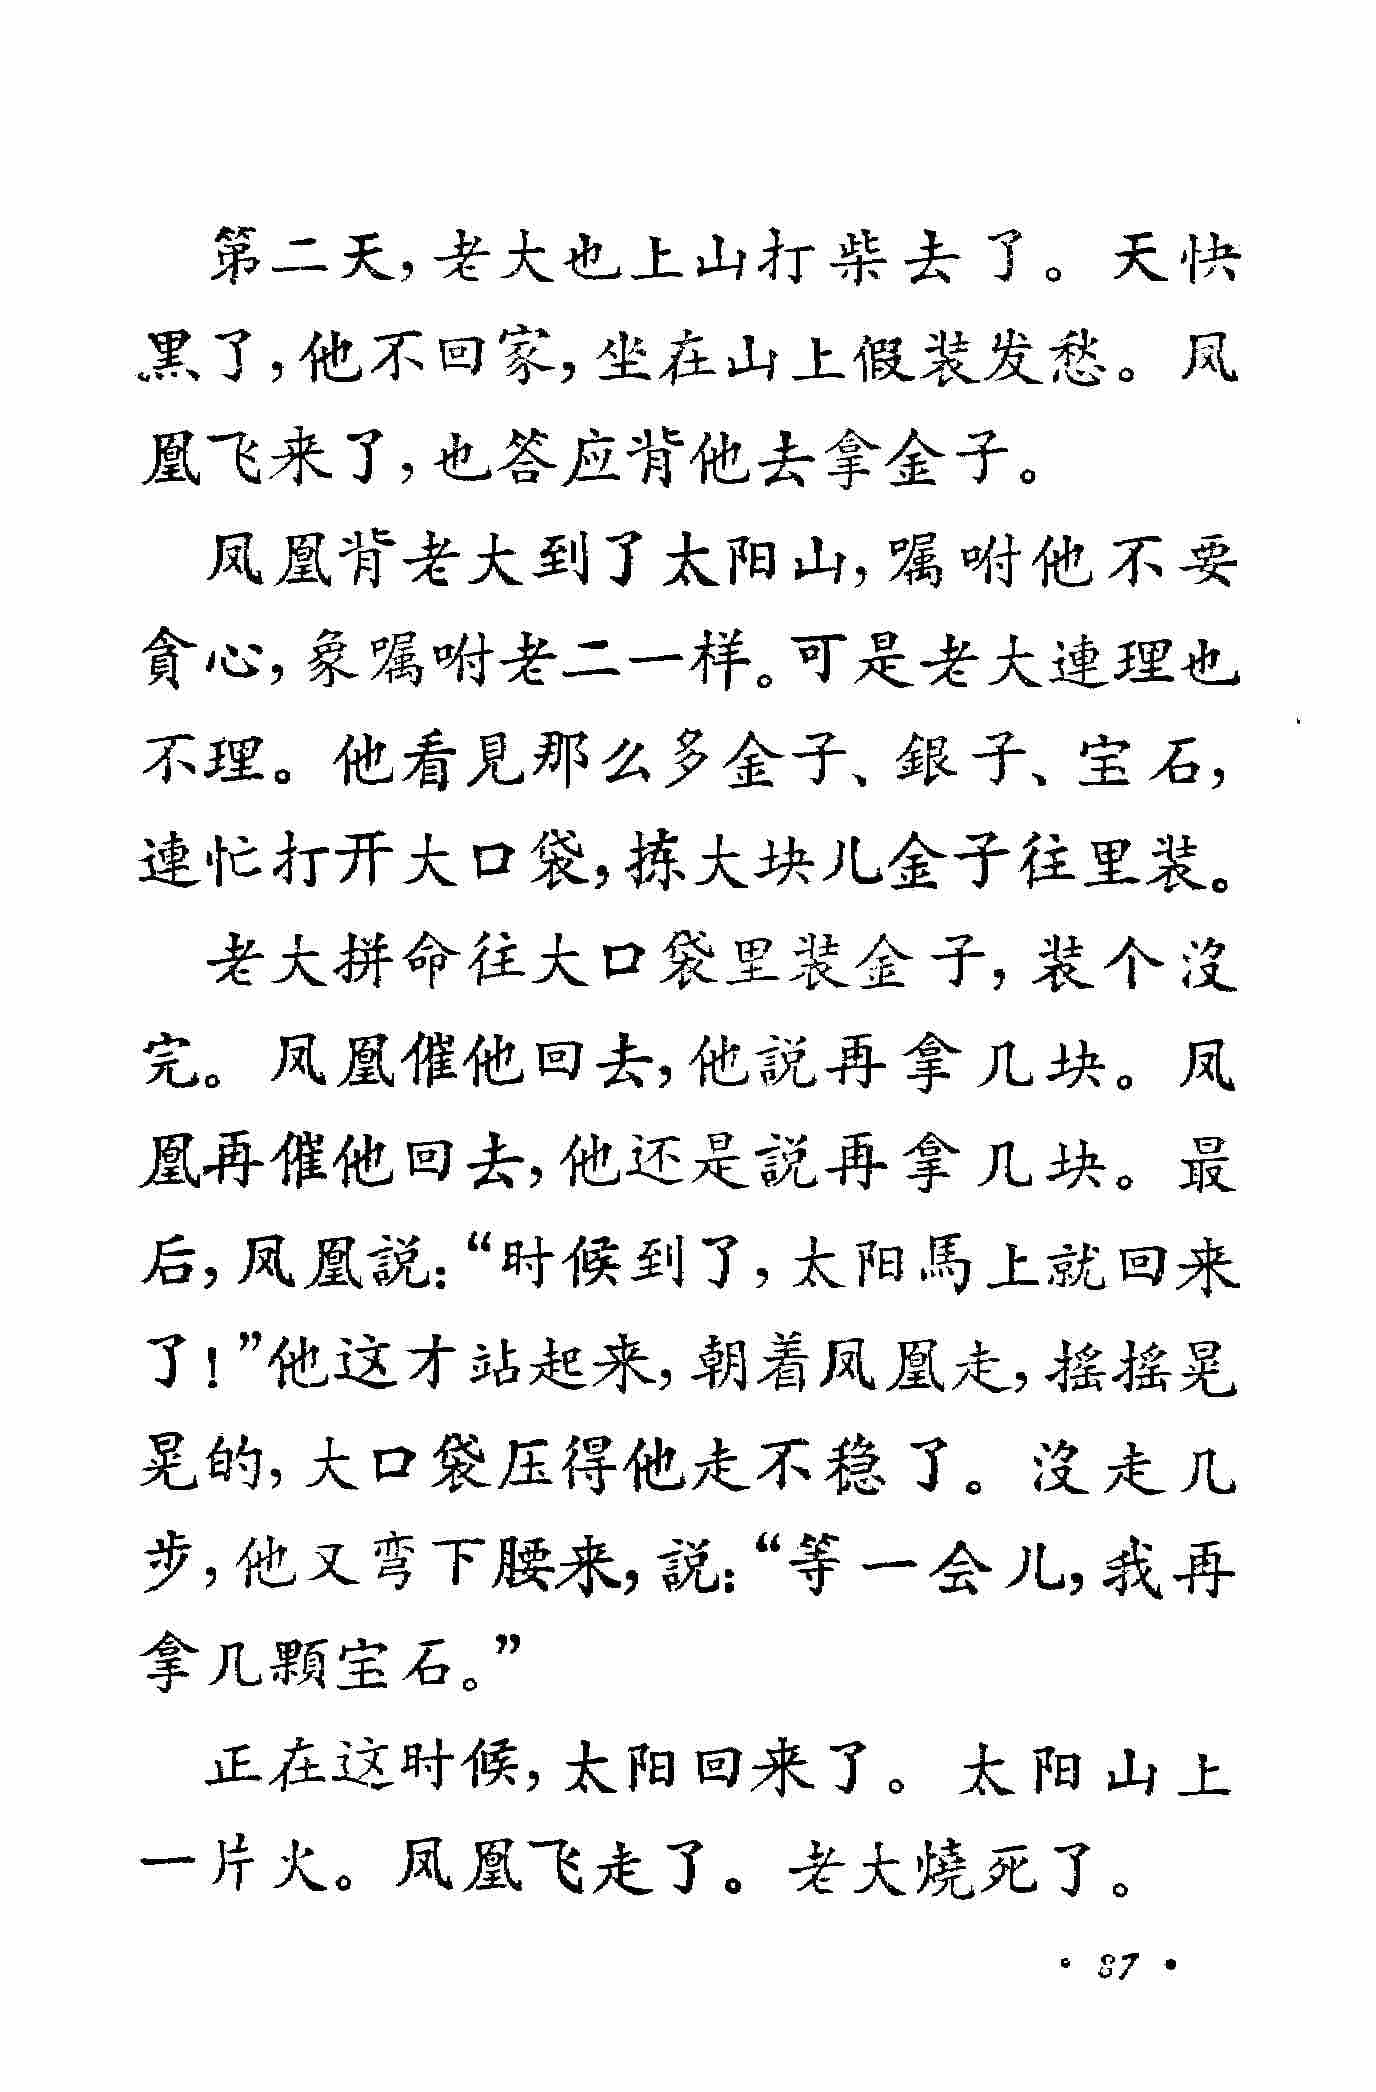 第二天，老大也上山打柴去了。天快
黑了，他不回家，坐在山上假装发愁。凤
凰飞来了，也答应背他去拿金子。
凤凰背老大到了太阳山，嘱咐他不要
貪心，象嘱咐老二一样。可是老大連理也
不理。他看見那么多金子、銀子、宝石，
連忙打开大口袋，拣大块儿金子往里装。
老大拼命往大口袋里装金子，装个沒
完。凤凰催他回去，他説再拿几块。凤
凰再催他回去，他还是説再拿几块。最
后，凤凰説：“时候到了，太阳馬上就回来
了！”他这才站起来，朝着凤凰走，摇摇晃
晃的，大口袋压得他走不稳了。沒走几
步，他又弯下腰来，説：“等一会儿，我再
拿几顆宝石。”
正在这时候，太阳回来了。太阳山上
一片火。凤凰飞走了。老大燒死了。
• 87 •